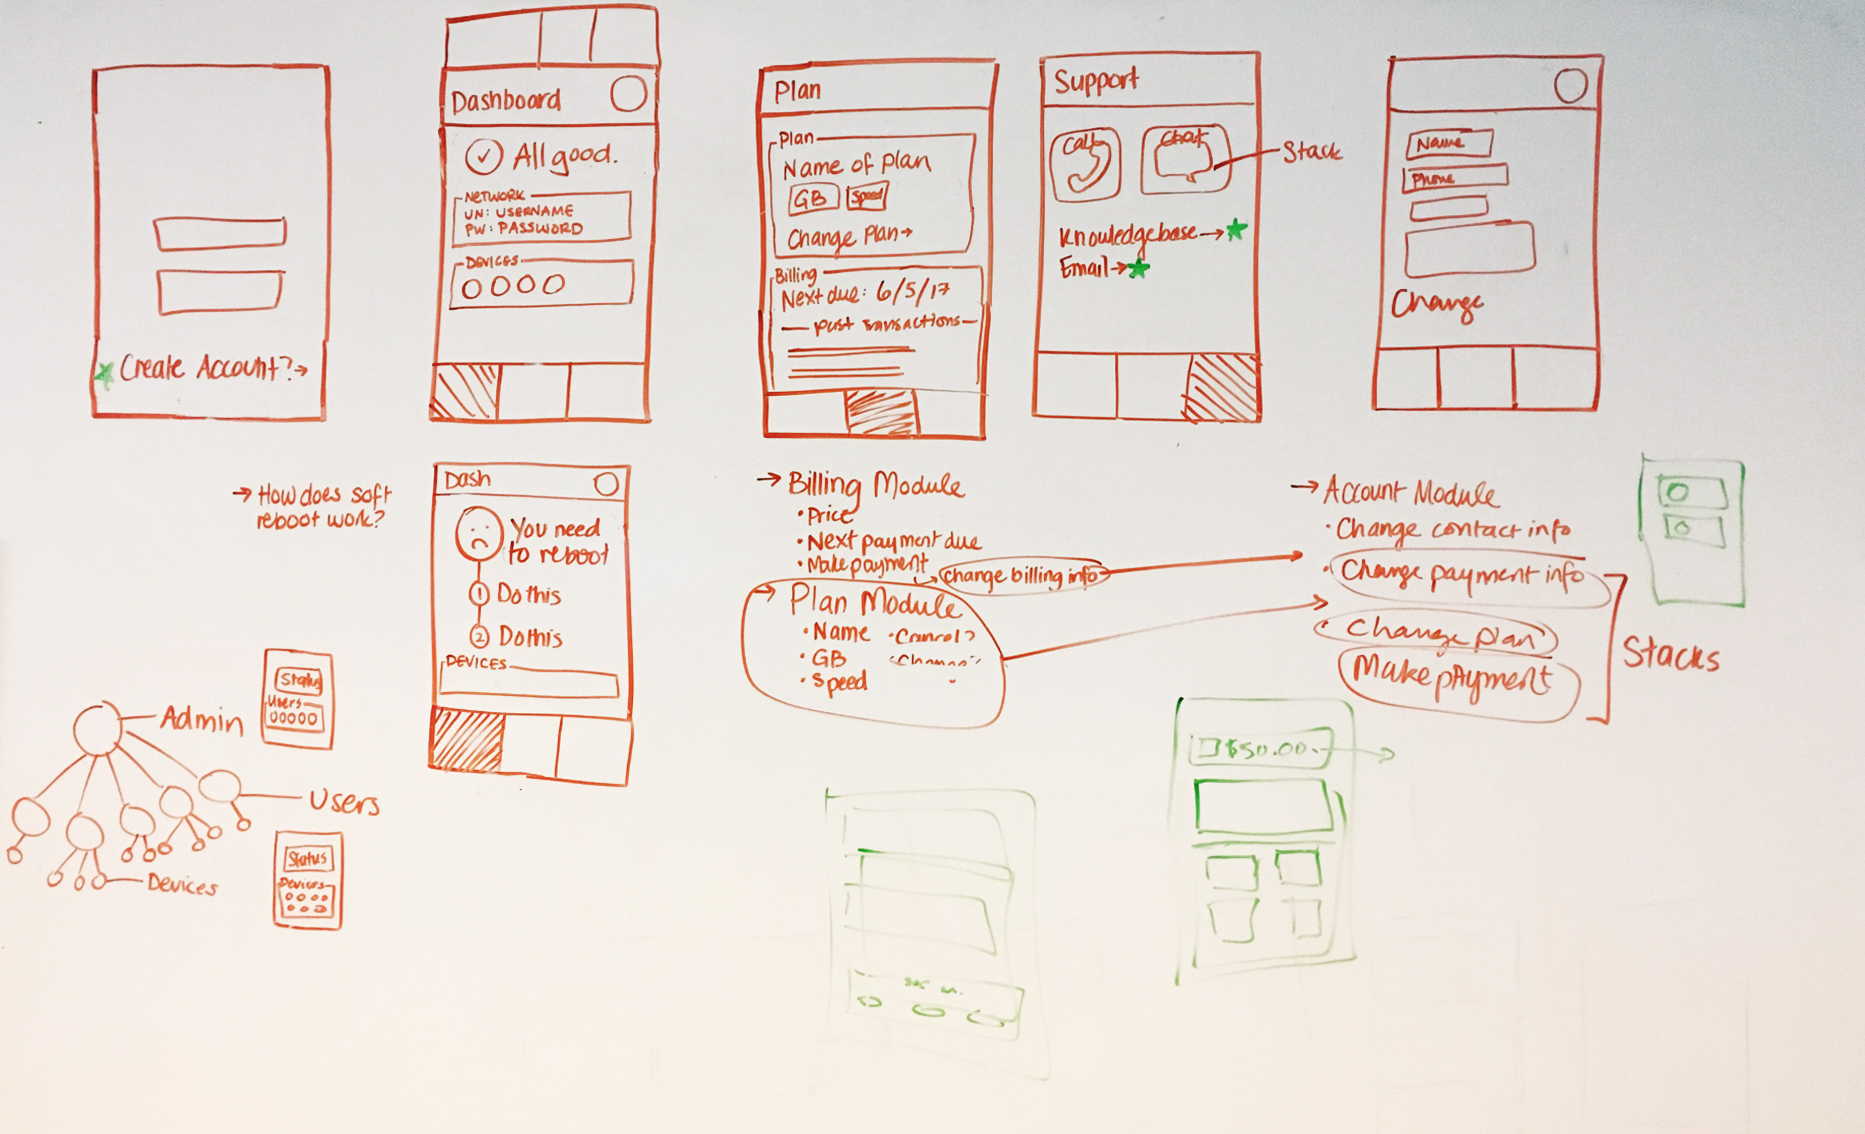 ★ Create Account? →
Dashboard
✓ All good.
NETWORK
UN: USERNAME
PW: PASSWORD
DEVICES
Plan
Plan
Name of plan
GB Speed
Change Plan →
Billing
Next due: 6/5/17
— past transactions —
Support
Call Chat
Stack
Knowledgebase → ★
Email → ★
Name
Phone
Change
→ How does soft
reboot work?
Dash
You need
to reboot
1 Do this
2 Do this
DEVICES
→ Billing Module
• Price
• Next payment due
• Make payment
change billing info
→ Plan Module
• Name • Cancel?
• GB
• Speed
→ Account Module
• Change contact info
• Change payment info
• Change plan
Make payment
Stacks
Admin
Status
Users
Users
Devices
Status
Devices
$50.00